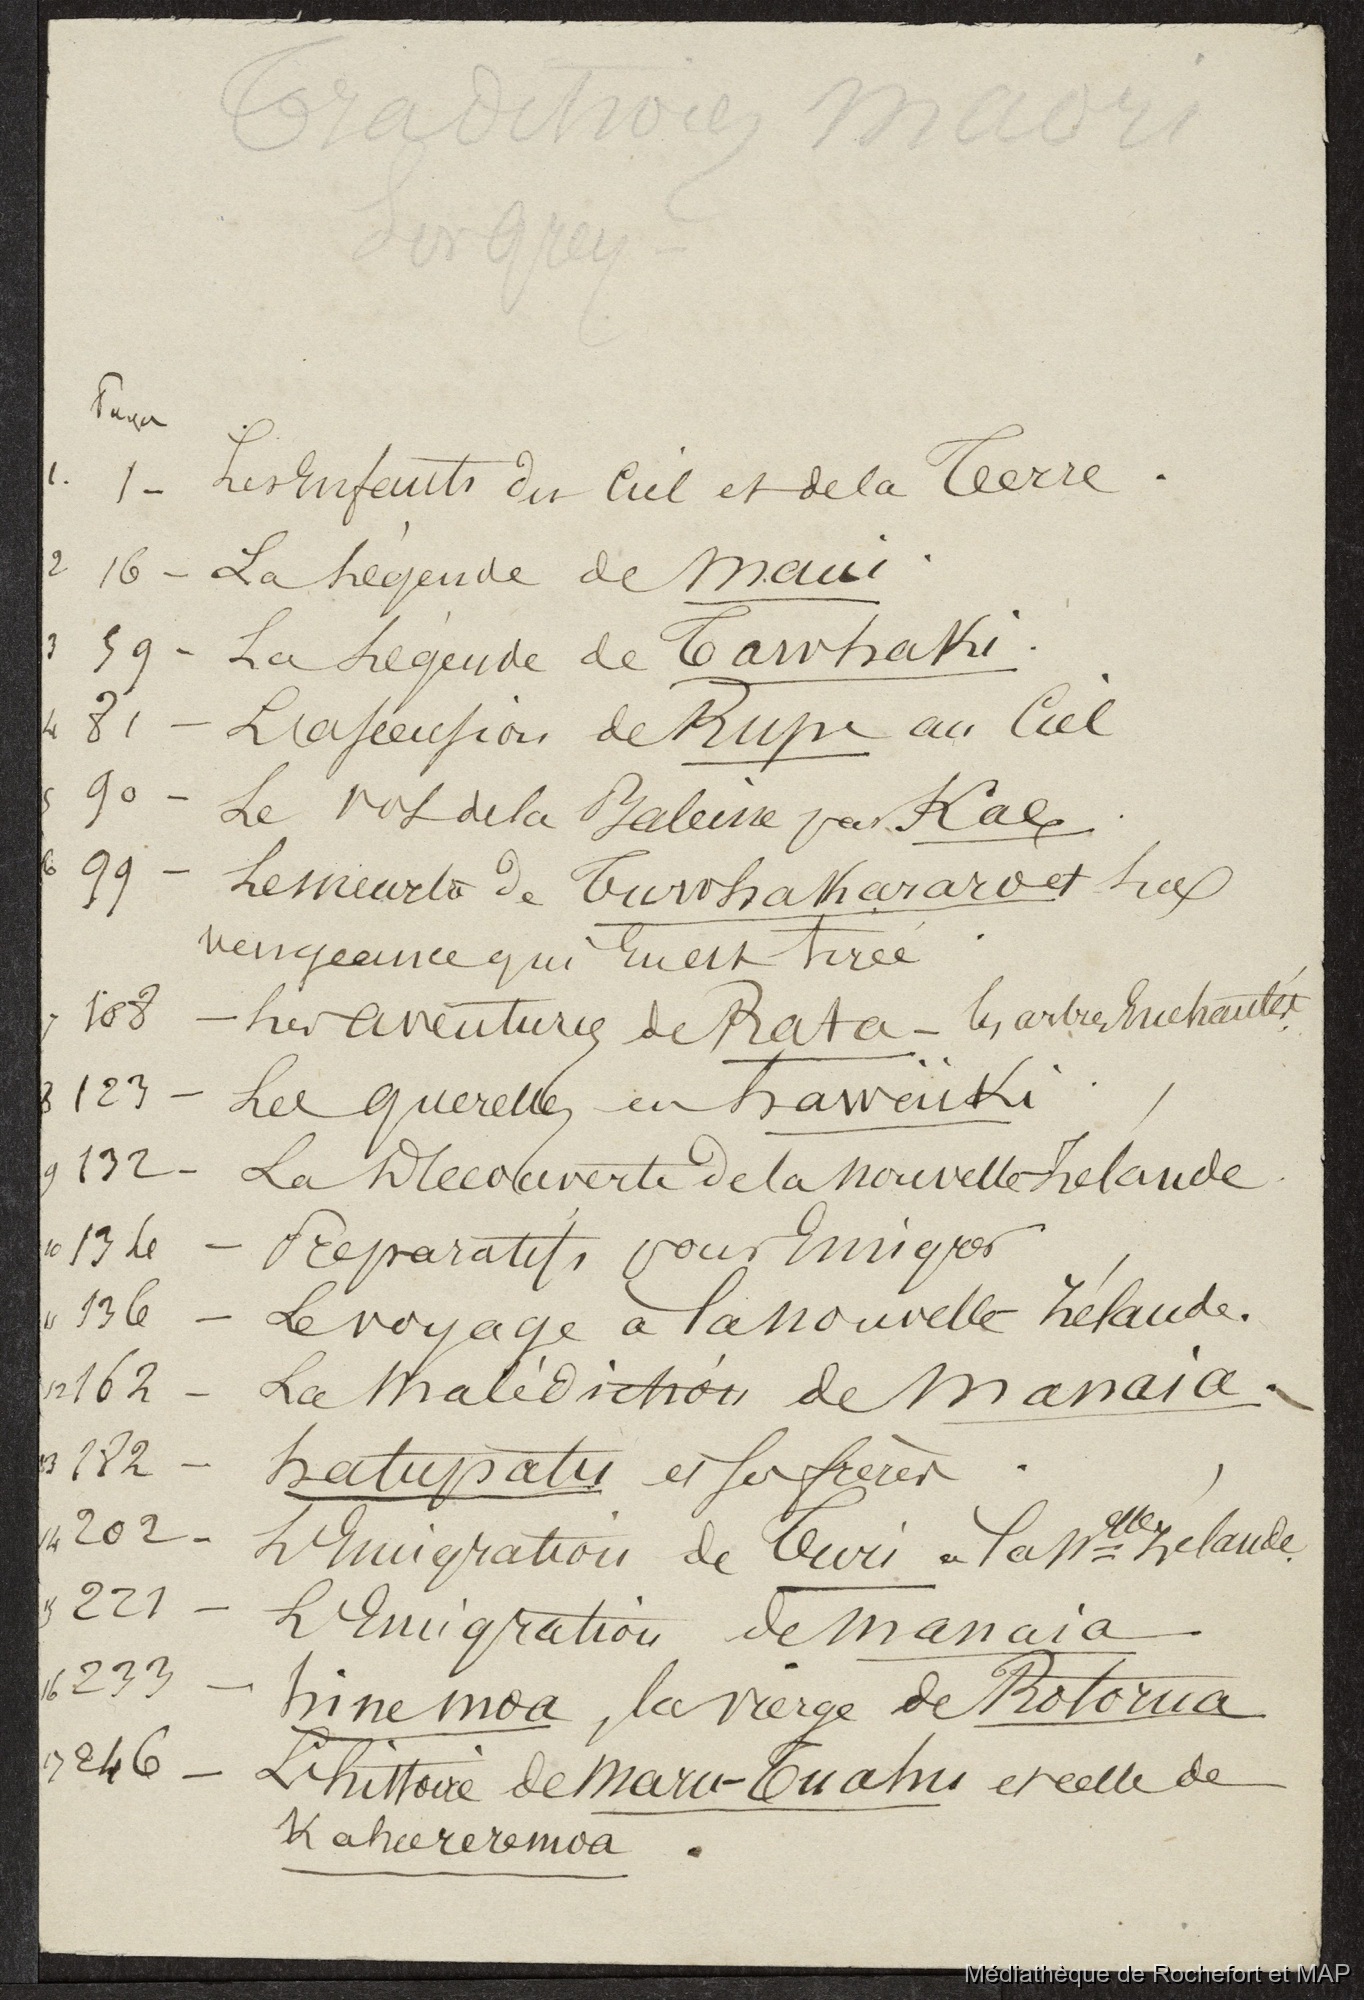 Traditions Maori
Sir Grey -
Pages
1. 1 - Les Enfants du Ciel et de la Terre.
2 16 - La Légende de Maui.
3 59 - La Légende de Tawhaki.
4 81 - L'ascension de Rupe au Ciel
5 90 - Le vol de la Baleine par Kae.
6 99 - Le meurtre de Tuwhakararo et la
vengeance qui en est tirée.
7 108 - Les aventures de Rata - les arbres Enchantés.
8 123 - Les querelles en hawaïki.
9 132 - La Découverte de la nouvelle Zélande.
10 134 - Préparatifs pour Emigrer
11 136 - Le voyage à la nouvelle Zélande.
12 162 - La Malédiction de Manaia.
13 182 - hatupatu et ses frères.
14 202 - L'Emigration de Turi à la Nelle Zélande.
15 221 - L'Emigration de Manaia
16 233 - hinemoa, la vierge de Rotorua
17 246 - L'histoire de Maru-Tuahu et celle de
Kahureremoa.
Médiathèque de Rochefort et MAP